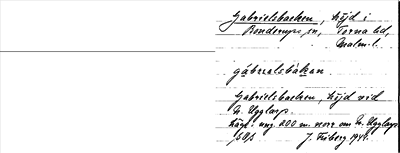 Gabrielsbacken, höjd i
Bonderups sn, Torna hd,
Malm. l.
gábrealsbàkan.
Gabrielsbacken, höjd vid
N. Ugglarp.
Läge: ung. 200 m. norr om N. Ugglarp
J. Friberg 1944.